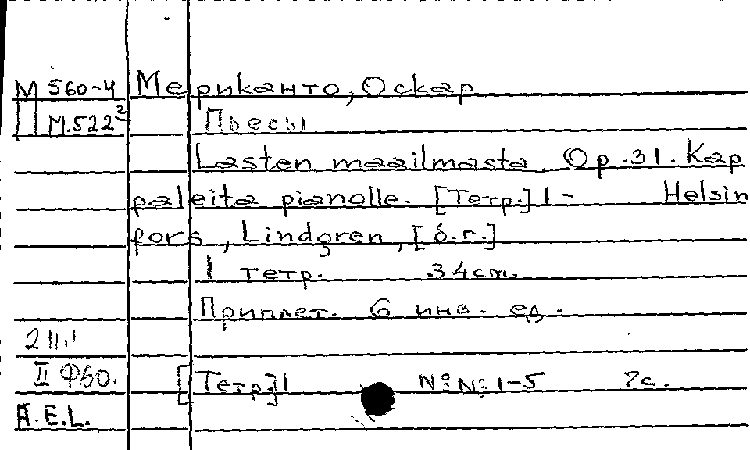 М 560-4 Мериканто, Оскар
П М.522² Пьесы
Lasten maailmasta. Op.31. Kap
paleita pianolle. [Тетр.] 1- Helsin
fors, Lindgren, [б.г.]
1 тетр. 34cm.
Приплет. 6 инв. ед.
2 II.1
II Ф50. [Тетр.]1 №№ 1-5 7с.
A.E.L.